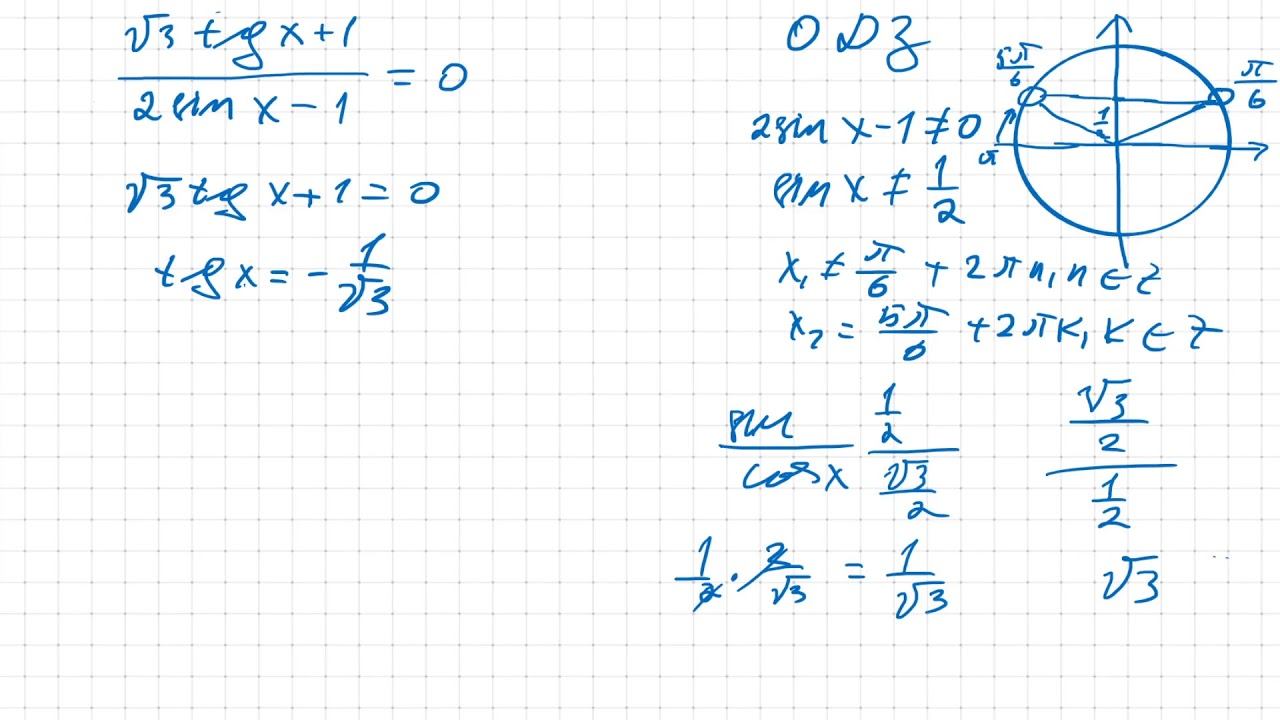 √3 tg x + 1
―――――― = 0
2 sin x − 1
√3 tg x + 1 = 0
tg x = − 1/√3
ODZ
2 sin x − 1 ≠ 0
sin x ≠ 1/2
x₁ ≠ π/6 + 2πn, n ∈ Z
x₂ = 5π/6 + 2πk, k ∈ Z
5π/6
π/6
1/2
π
sin
―――
cos x
1/2
―――
√3/2
√3/2
―――
1/2
1/2 · 2/√3 = 1/√3
√3